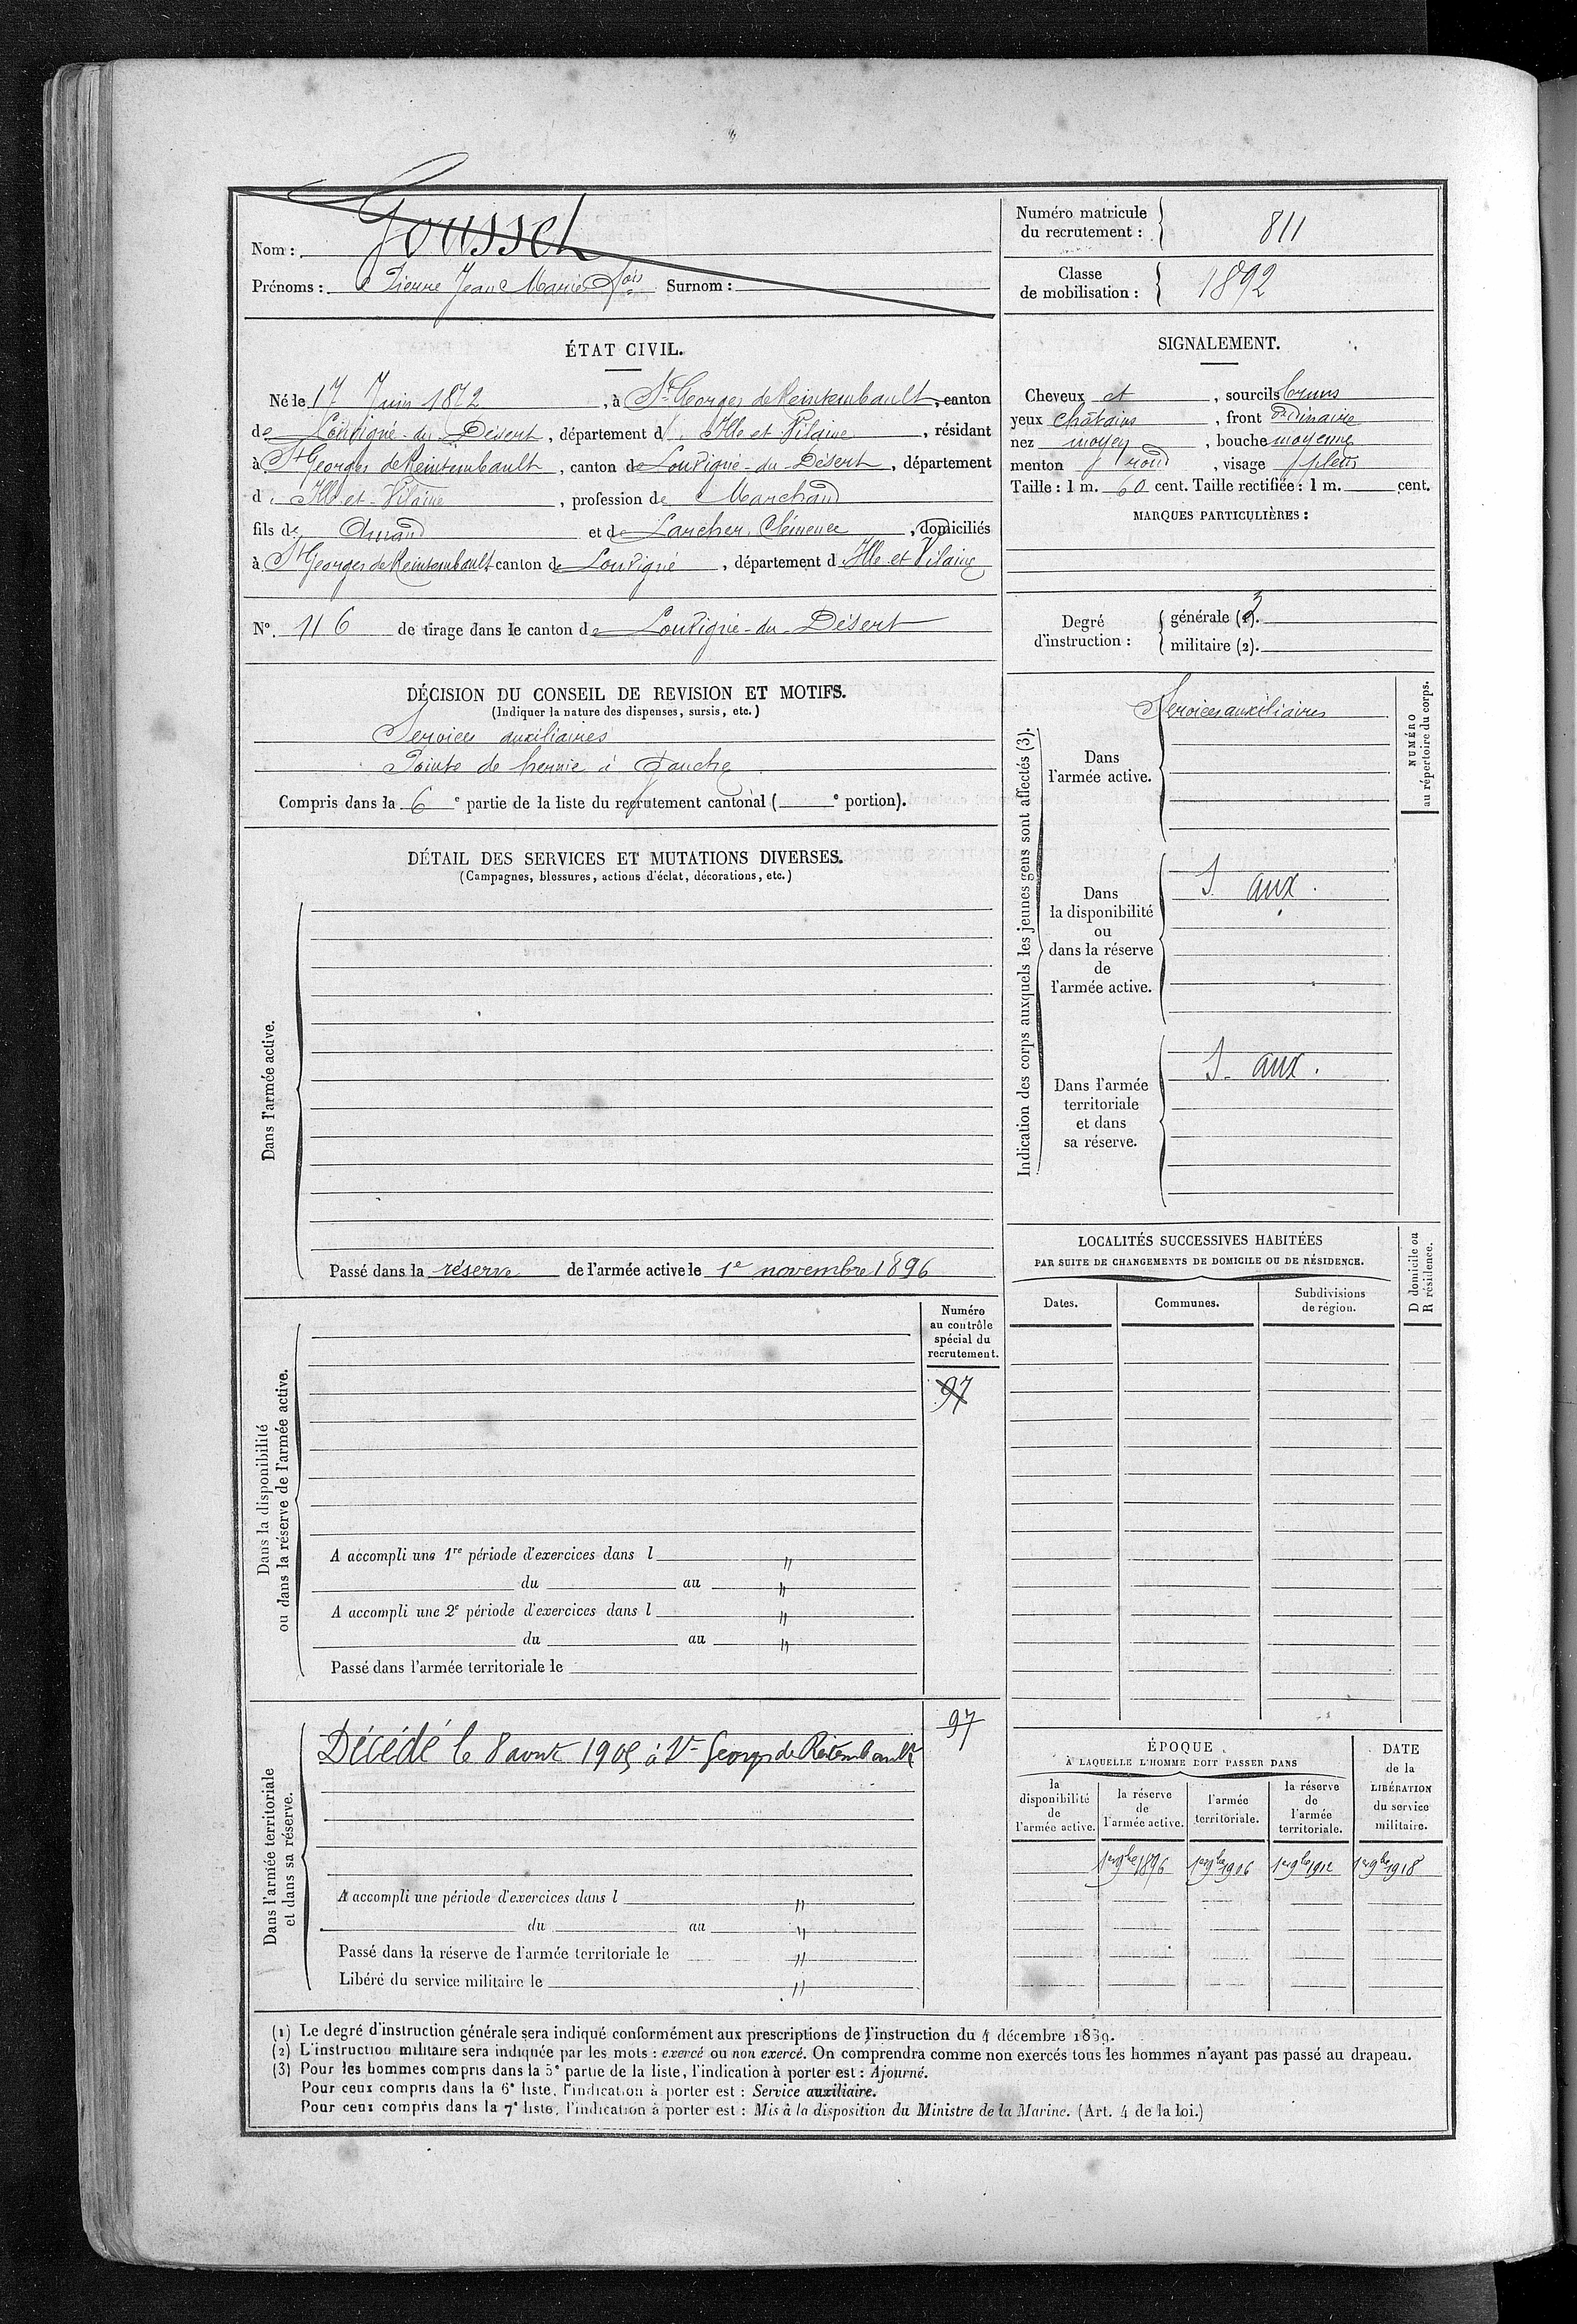 Nom : Gousset
Prénoms : Pierre Jean Marie Fois Surnom :
ÉTAT CIVIL.
Né le 17 Juin 1872, à St Georges de Reintembault, canton
de Louvigné-du-Désert, département d'Ille et Vilaine, résidant
à St Georges de Reintembault, canton de Louvigné-du-Désert, département
d'Ille-et-Vilaine, profession de Marchand
fils de et de Larcher, Clémence, domiciliés
à St Georges de Reintembault canton de Louvigné, département d'Ille et Vilaine
N°. 116 de tirage dans le canton de Louvigné-du-Désert
DÉCISION DU CONSEIL DE REVISION ET MOTIFS.
(Indiquer la nature des dispenses, sursis, etc.)
Services auxiliaires
Pointe de hernie à Gauche
Compris dans la 6e partie de la liste du recrutement cantonal ( e portion).
DÉTAIL DES SERVICES ET MUTATIONS DIVERSES.
(Campagnes, blessures, actions d'éclat, décorations, etc.)
Dans l'armée active.
Passé dans la réserve de l'armée active le 1e novembre 1896
Numéro
au contrôle
spécial du
recrutement.
97
Dans la disponibilité
ou dans la réserve de l'armée active.
A accompli une 1re période d'exercices dans l "
du au "
A accompli une 2e période d'exercices dans l "
du au "
Passé dans l'armée territoriale le
97
Dans l'armée territoriale
et dans sa réserve.
Décédé le 8 aout 1905 à St Georges de Reitembault
A accompli une période d'exercices dans l "
du au "
Passé dans la réserve de l'armée territoriale le "
Libéré du service militaire le "
Numéro matricule
du recrutement : 811
Classe
de mobilisation : 1892
SIGNALEMENT.
Cheveux et, sourcils bruns
yeux châtains, front ordinaire
nez moyen, bouche moyenne
menton rond, visage plein
Taille : 1 m. 60 cent. Taille rectifiée : 1 m. cent.
MARQUES PARTICULIÈRES :
Degré
d'instruction :
générale (1). 3
militaire (2).
Indication des corps auxquels les jeunes gens sont affectés (3).
NUMÉRO
au répertoire du corps.
Services auxiliaires
Dans
l'armée active.
Dans
la disponibilité
ou
dans la réserve
de
l'armée active.
S. aux.
Dans l'armée
territoriale
et dans
sa réserve.
S. aux.
LOCALITÉS SUCCESSIVES HABITÉES
PAR SUITE DE CHANGEMENTS DE DOMICILE OU DE RÉSIDENCE.
D domicile ou
R résidence.
Dates. Communes. Subdivisions
de région.
ÉPOQUE
À LAQUELLE L'HOMME DOIT PASSER DANS
la
disponibilité
de
l'armée active.
la réserve
de
l'armée active.
l'armée
territoriale.
la réserve
de
l'armée
territoriale.
DATE
de la
LIBÉRATION
du service
militaire.
1er 9bre 1896 1er 9bre 1906 1er 9bre 1912 1er 9bre 1918
(1) Le degré d'instruction générale sera indiqué conformément aux prescriptions de l'instruction du 4 décembre 1889.
(2) L'instruction militaire sera indiquée par les mots : exercé ou non exercé. On comprendra comme non exercés tous les hommes n'ayant pas passé au drapeau.
(3) Pour les hommes compris dans la 5e partie de la liste, l'indication à porter est : Ajourné.
Pour ceux compris dans la 6e liste, l'indication à porter est : Service auxiliaire.
Pour ceux compris dans la 7e liste, l'indication à porter est : Mis à la disposition du Ministre de la Marine. (Art. 4 de la loi.)